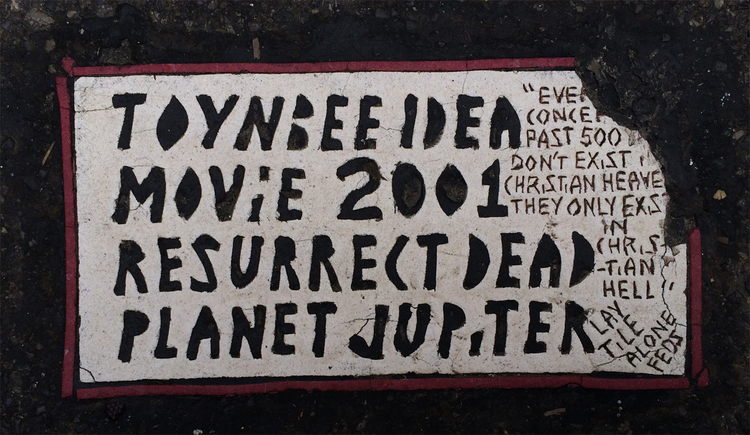 TOYNBEE IDEA
MOVIE 2001
RESURRECT DEAD
PLANET JUPITER
PAST 500
DON'T EXIST
CHRISTIAN
THEY ONLY
IN
CHRIS-
-TIAN
HELL"
LAY
TILE
ALONE